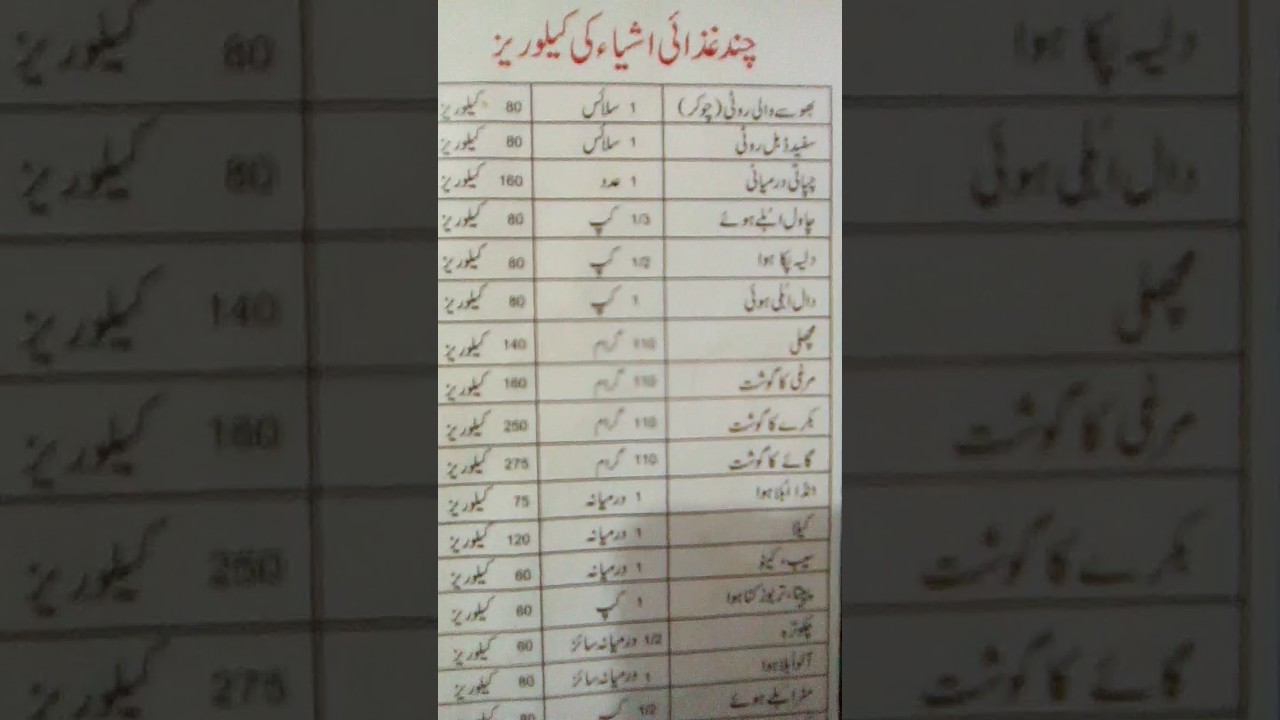 چند غذائی اشیاء کی کیلوریز
بھوسے والی روٹی (چوکر) 1 سلائس 80 کیلوریز
سفید ڈبل روٹی 1 سلائس 80 کیلوریز
چپاتی درمیانی 1 عدد 160 کیلوریز
چاول ابلے ہوئے 1/3 کپ 80 کیلوریز
دلیہ پکا ہوا 1/2 کپ 80 کیلوریز
دال ابلی ہوئی 1 کپ 80 کیلوریز
مچھلی 110 گرام 140 کیلوریز
مرغی کا گوشت 110 گرام 160 کیلوریز
بکرے کا گوشت 110 گرام 250 کیلوریز
گائے کا گوشت 110 گرام 275 کیلوریز
انڈا ابلا ہوا 1 درمیانہ 75 کیلوریز
کیلا 1 درمیانہ 120 کیلوریز
سیب، کینو 1 درمیانہ 60 کیلوریز
پپیتا، تربوز کٹا ہوا 1 کپ 60 کیلوریز
چکوترہ 1/2 درمیانہ سائز 60 کیلوریز
آلو ابلا ہوا 1 درمیانہ سائز 80 کیلوریز
مٹر ابلے ہوئے 1/2 کپ 80 کیلوریز